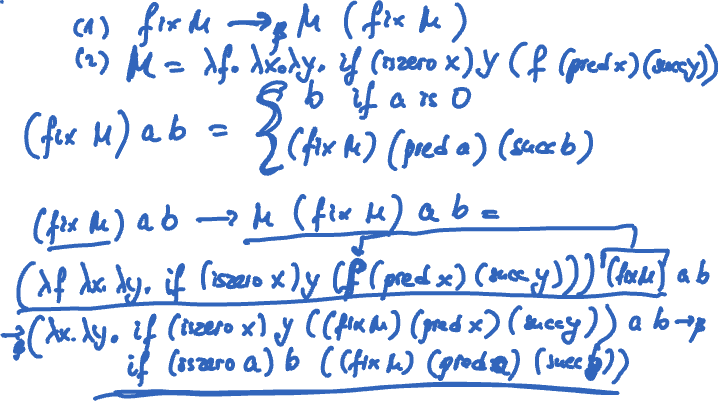 (1) fix M →β M (fix M)
(2) M = λf. λx. λy. if (iszero x) y (f (pred x) (succ y))
(fix M) a b = { b if a is 0
(fix M) (pred a) (succ b)
(fix M) a b → M (fix M) a b =
(λf λx. λy. if (iszero x) y (f (pred x) (succ y))) (fix M) a b
→β (λx. λy. if (iszero x) y ((fix M) (pred x) (succ y)) a b →β
if (iszero a) b ((fix M) (pred a) (succ b))